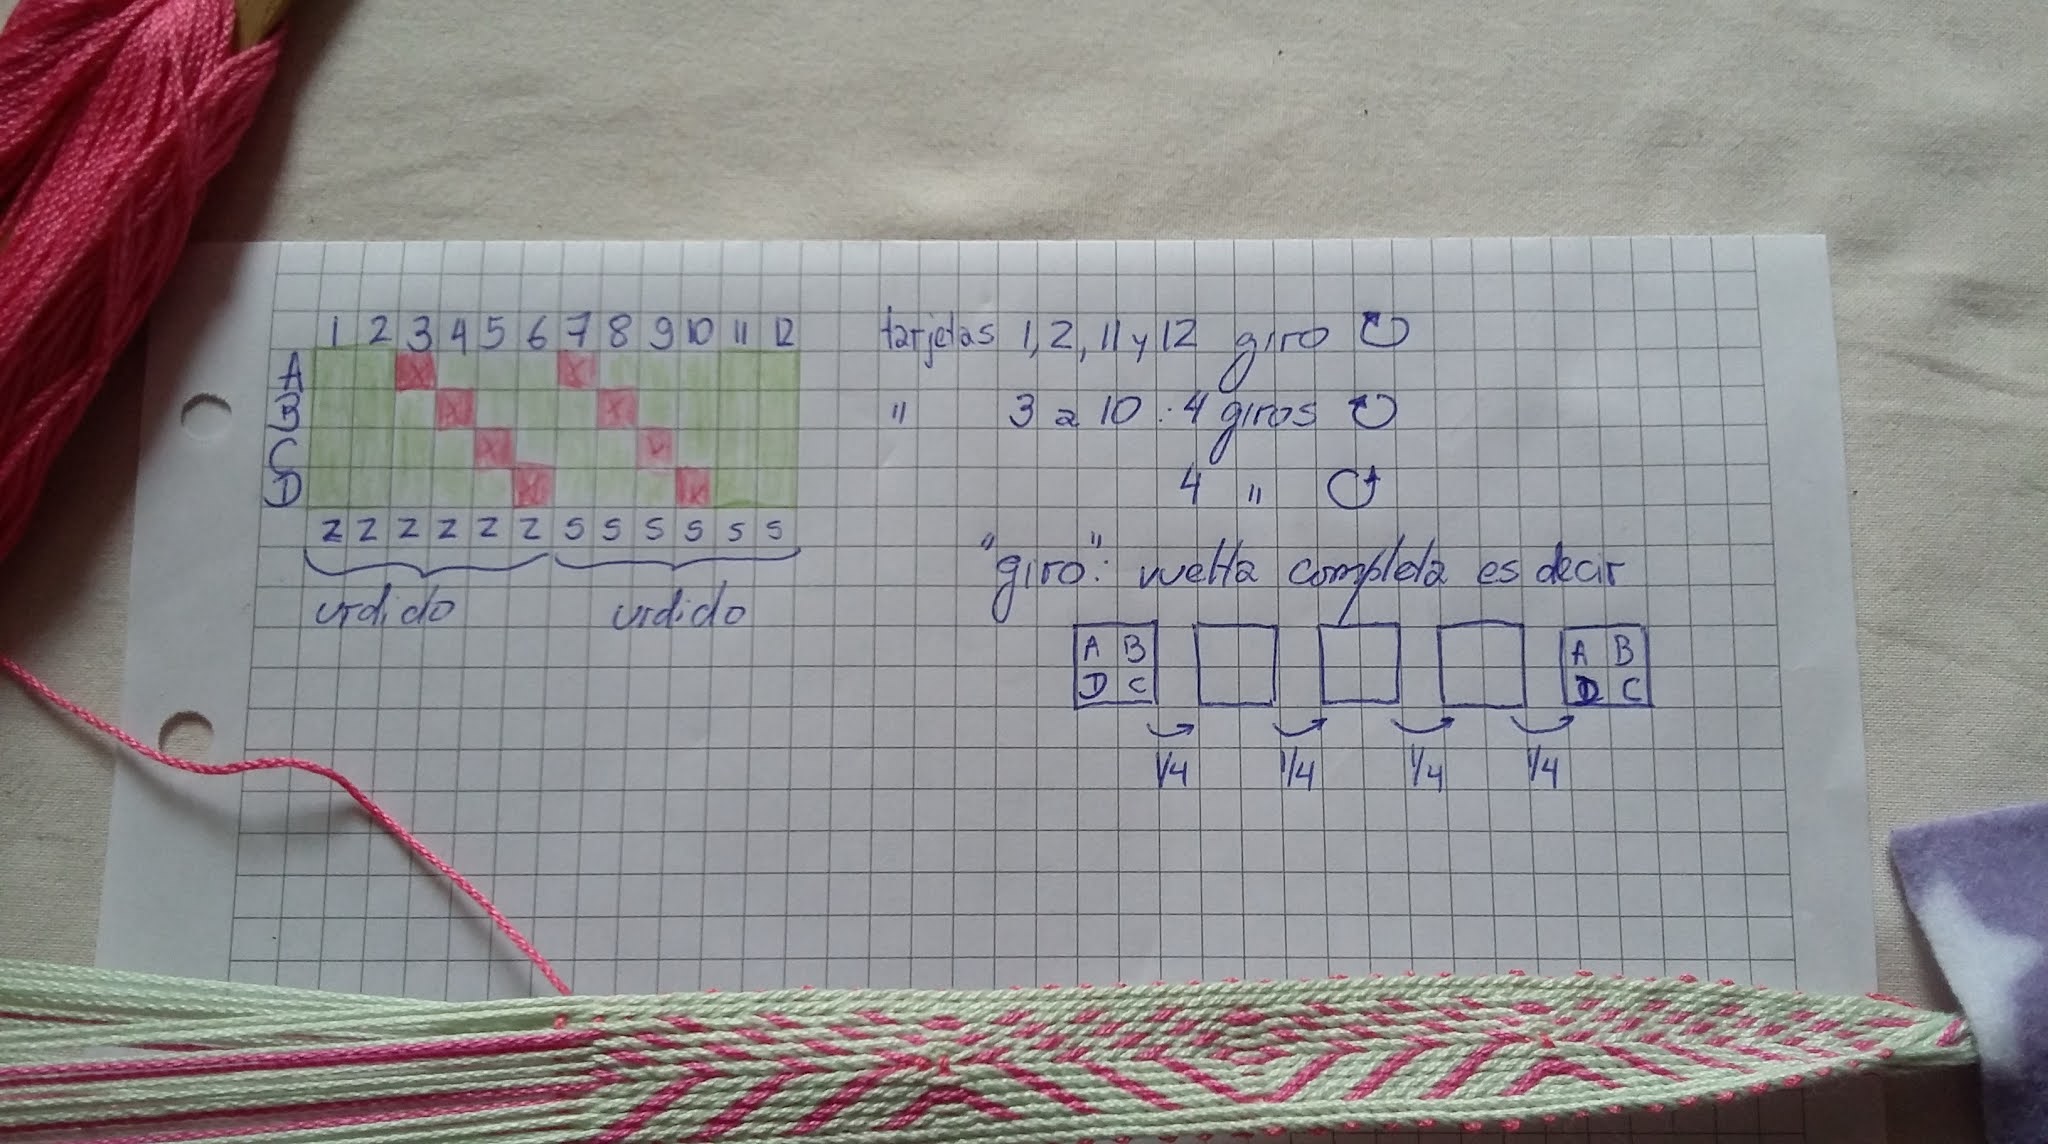 1 2 3 4 5 6 7 8 9 10 11 12
A X X
B X X
C X X
D X X
Z Z Z Z Z Z S S S S S S
urdido urdido
tarjetas 1, 2, 11 y 12 giro ↻
" 3 a 10 : 4 giros ↻
4 " ↺
"giro": vuelta completa es decir
A B A B
D C D C
1/4 1/4 1/4 1/4